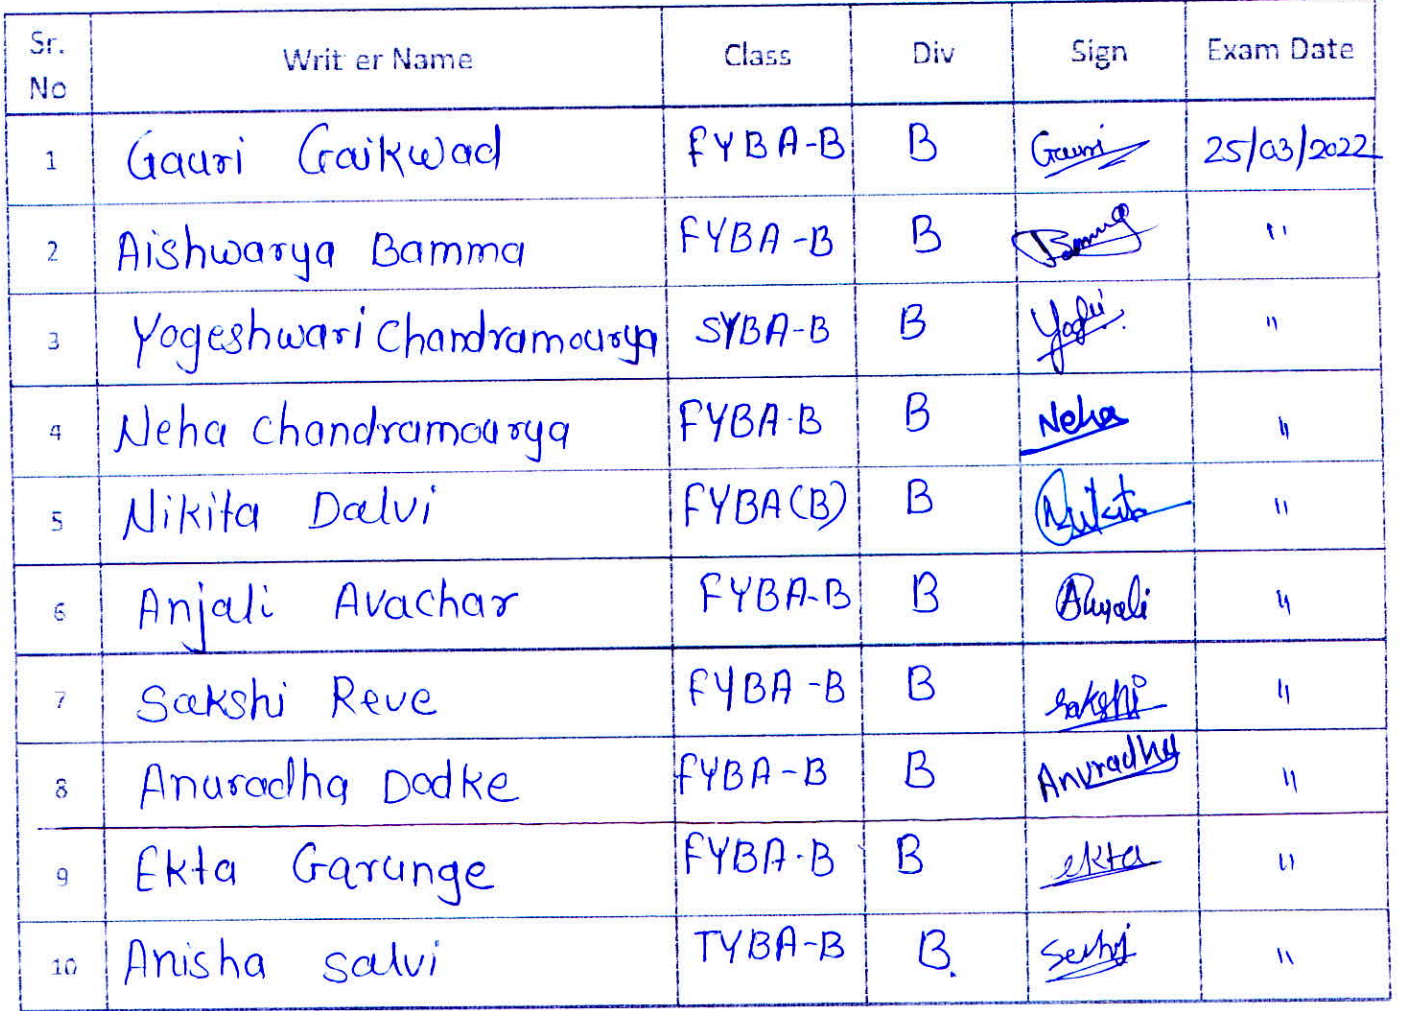 Sr. No Writer Name Class Div Sign Exam Date
1 Gauri Gaikwad FYBA-B B Gauri 25/03/2022
2 Aishwarya Bamma FYBA-B B "
3 Yogeshwari Chandramourya SYBA-B B "
4 Neha Chandramourya FYBA-B B Neha "
5 Nikita Dalvi FYBA(B) B Nikita "
6 Anjali Avachar FYBA-B B Anjali "
7 Sakshi Reve FYBA-B B Sakshi "
8 Anuradha Dodke FYBA-B B Anuradha "
9 Ekta Garunge FYBA-B B ekta "
10 Anisha Salvi TYBA-B B. "